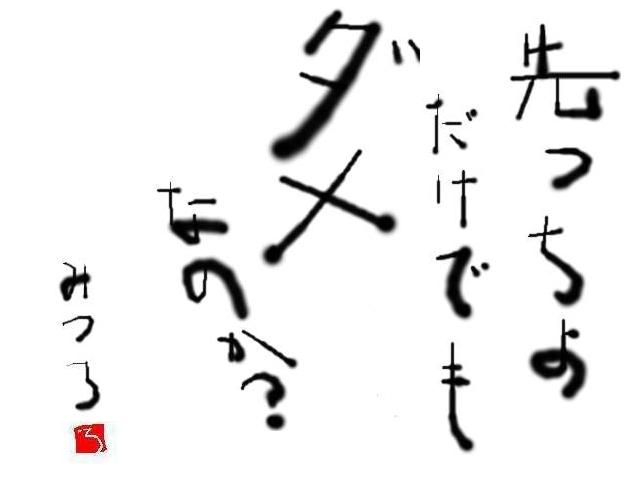 先っちょ
だけでも
ダメ
なのか?
みつを